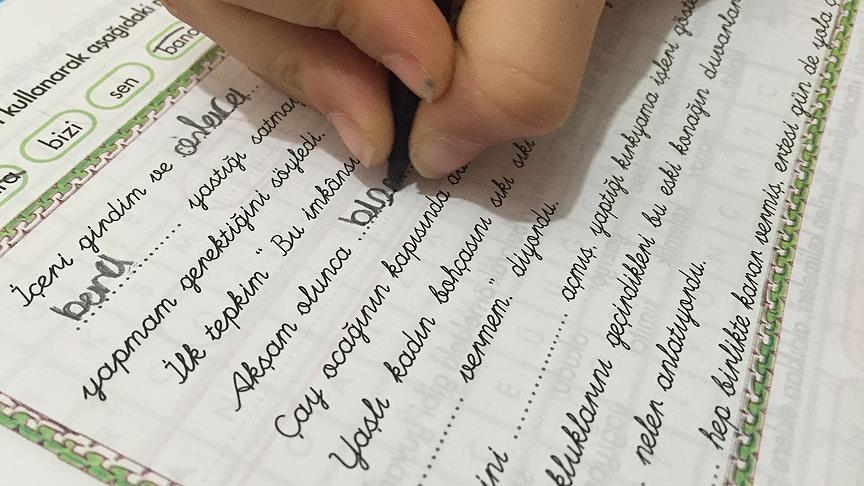 kullanarak aşağıdaki
bizi sen bana
İçeri girdim ve onlara
bana yastığı satmam
yapmam gerektiğini söyledi.
İlk tepkim " Bu imkânsı
Akşam olunca
Çay ocağının kapısında
Yaşlı kadın bohçasını sıkı sıkı
vermem." diyordu.
açmış, yaptığı kırkyama işleri
geçindikleri bu eski konağın duvarları
neler anlatıyordu.
hep birlikte karar vermiş, ertesi gün de yola